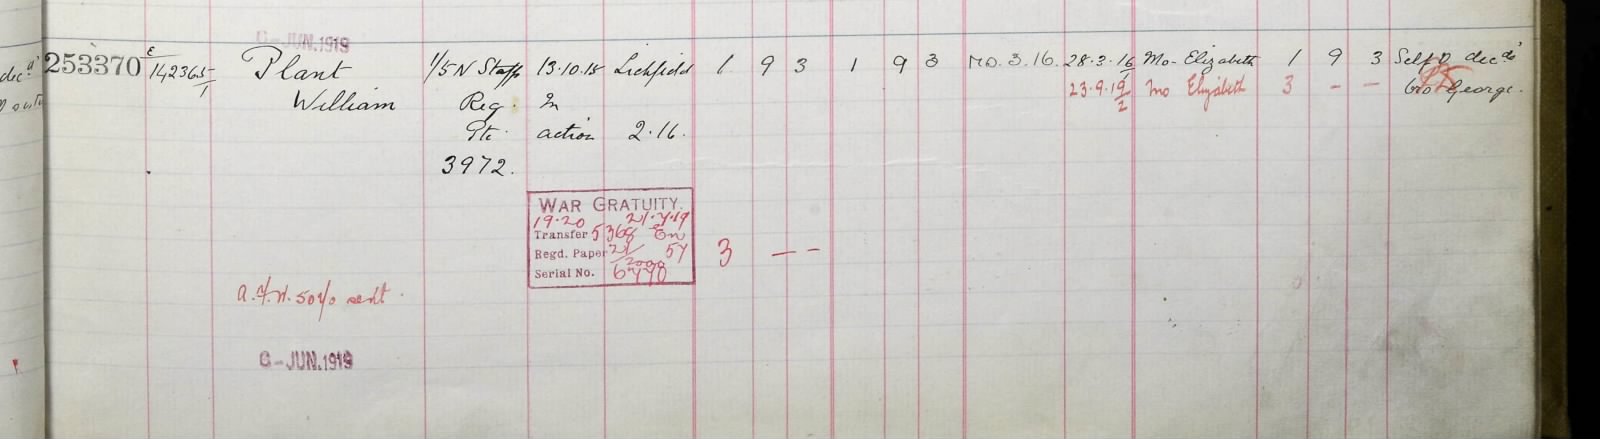 6-JUN.1919
dec.d 253370 E 142365/1 Plant 1/5 N Staffs 13.10.15 Lichfield 1 9 3 1 9 3 Mo. 3. 16. 28.3.16/1 Mo- Elizabeth 1 9 3 Self & dec.ds
William Reg. In 23.9.19/2 Mo Elizabeth 3 - - Bro George.
Pte. action 2.16.
3972.
WAR GRATUITY.
19.20 21.7.19
Transfer 5368 En
Regd. Paper 21/ 57 3 - -
Serial No. 6770
a.F.W. 5070 sent.
6-JUN.1919